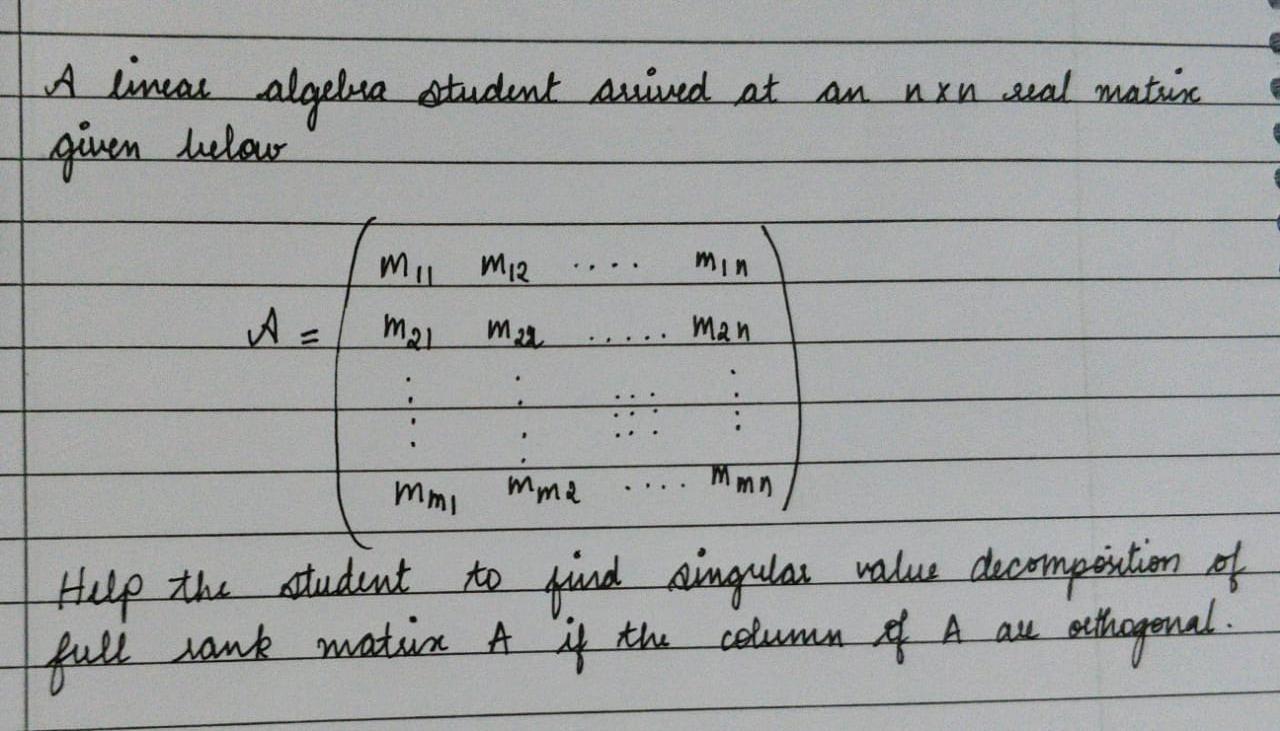 A linear algebra student arrived at an n×n real matrix
given below
m11 m12 .... m1n
A = m21 m22 ..... m2n
mm1 mm2 .... mmn
Help the student to find singular value decomposition of
full rank matrix A if the column of A are orthogonal.